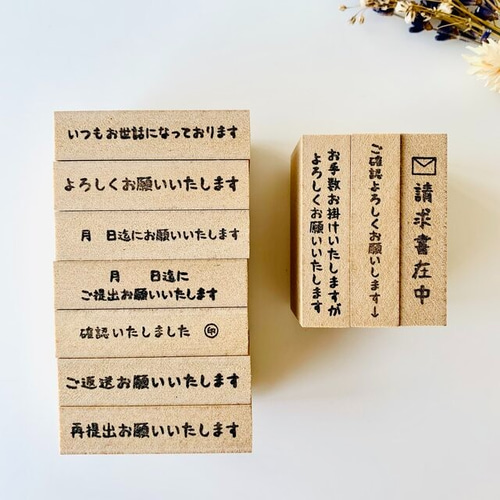 いつもお世話になっております
よろしくお願いいたします
月 日迄にお願いいたします
月 日迄に
ご提出お願いいたします
確認いたしました ㊞
ご返送お願いいたします
再提出お願いいたします
請求書在中
ご確認よろしくお願いします↓
お手数お掛けいたしますが
よろしくお願いいたします